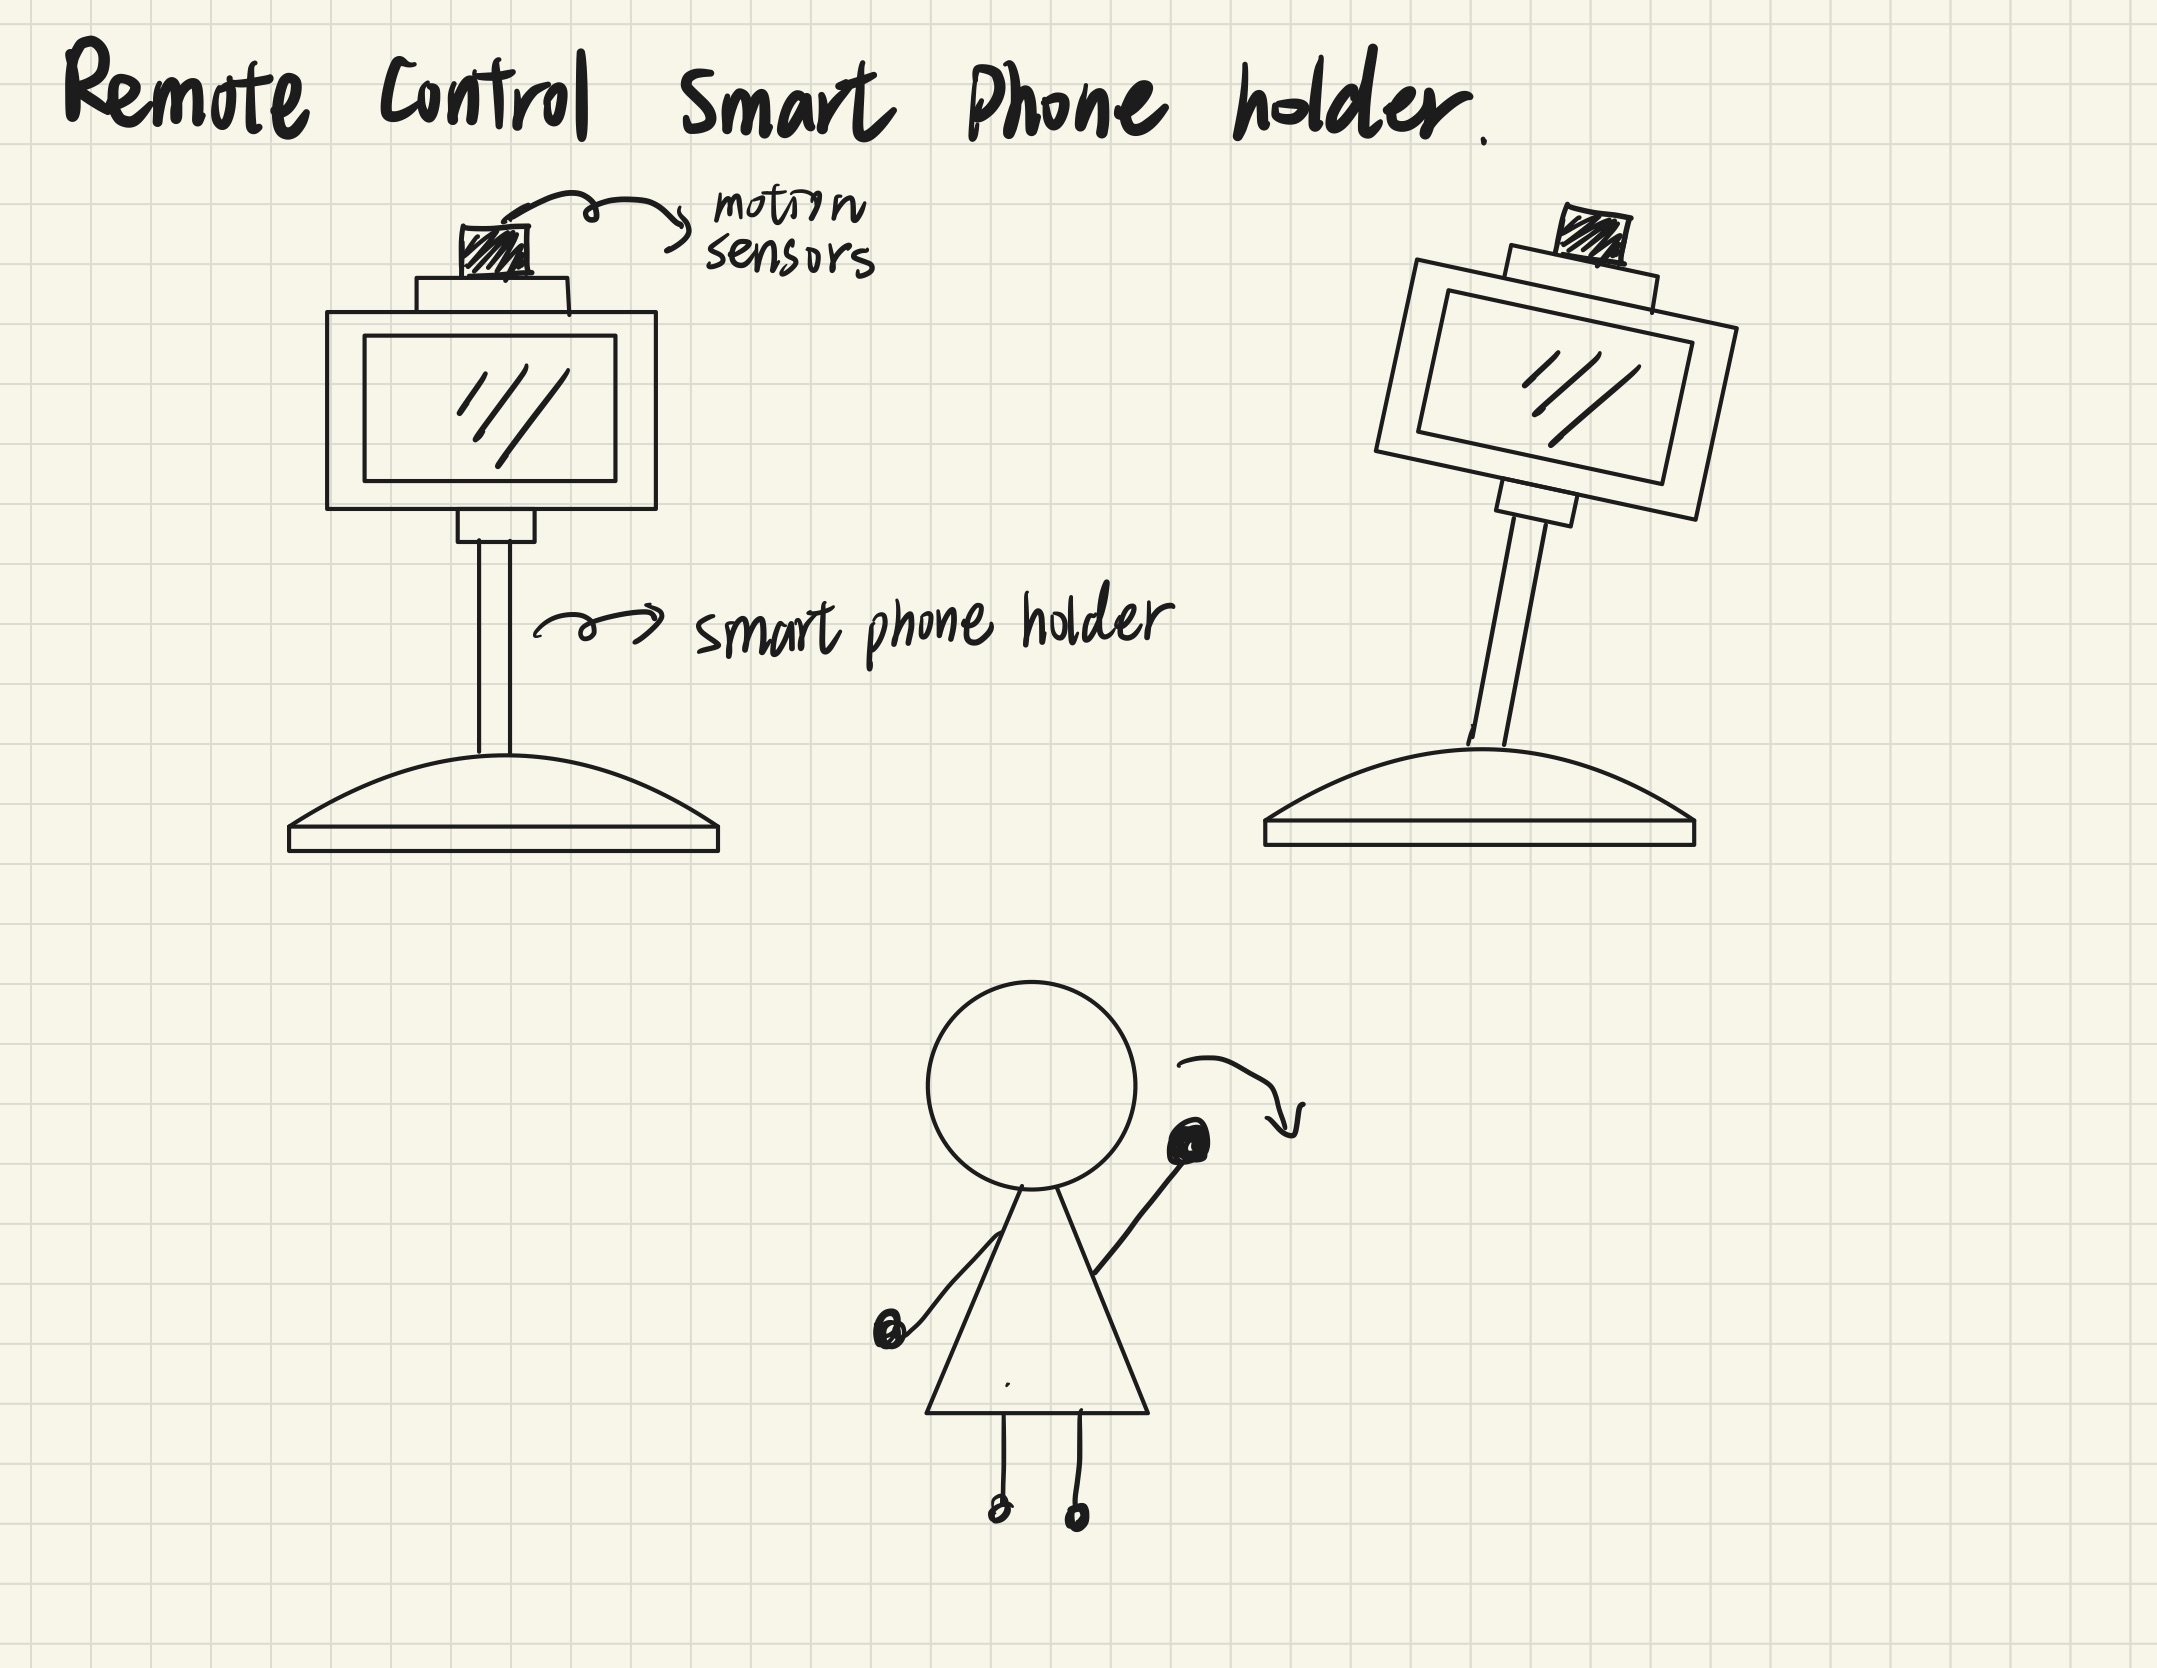 Remote Control Smart Phone holder.
motion
sensors
smart phone holder